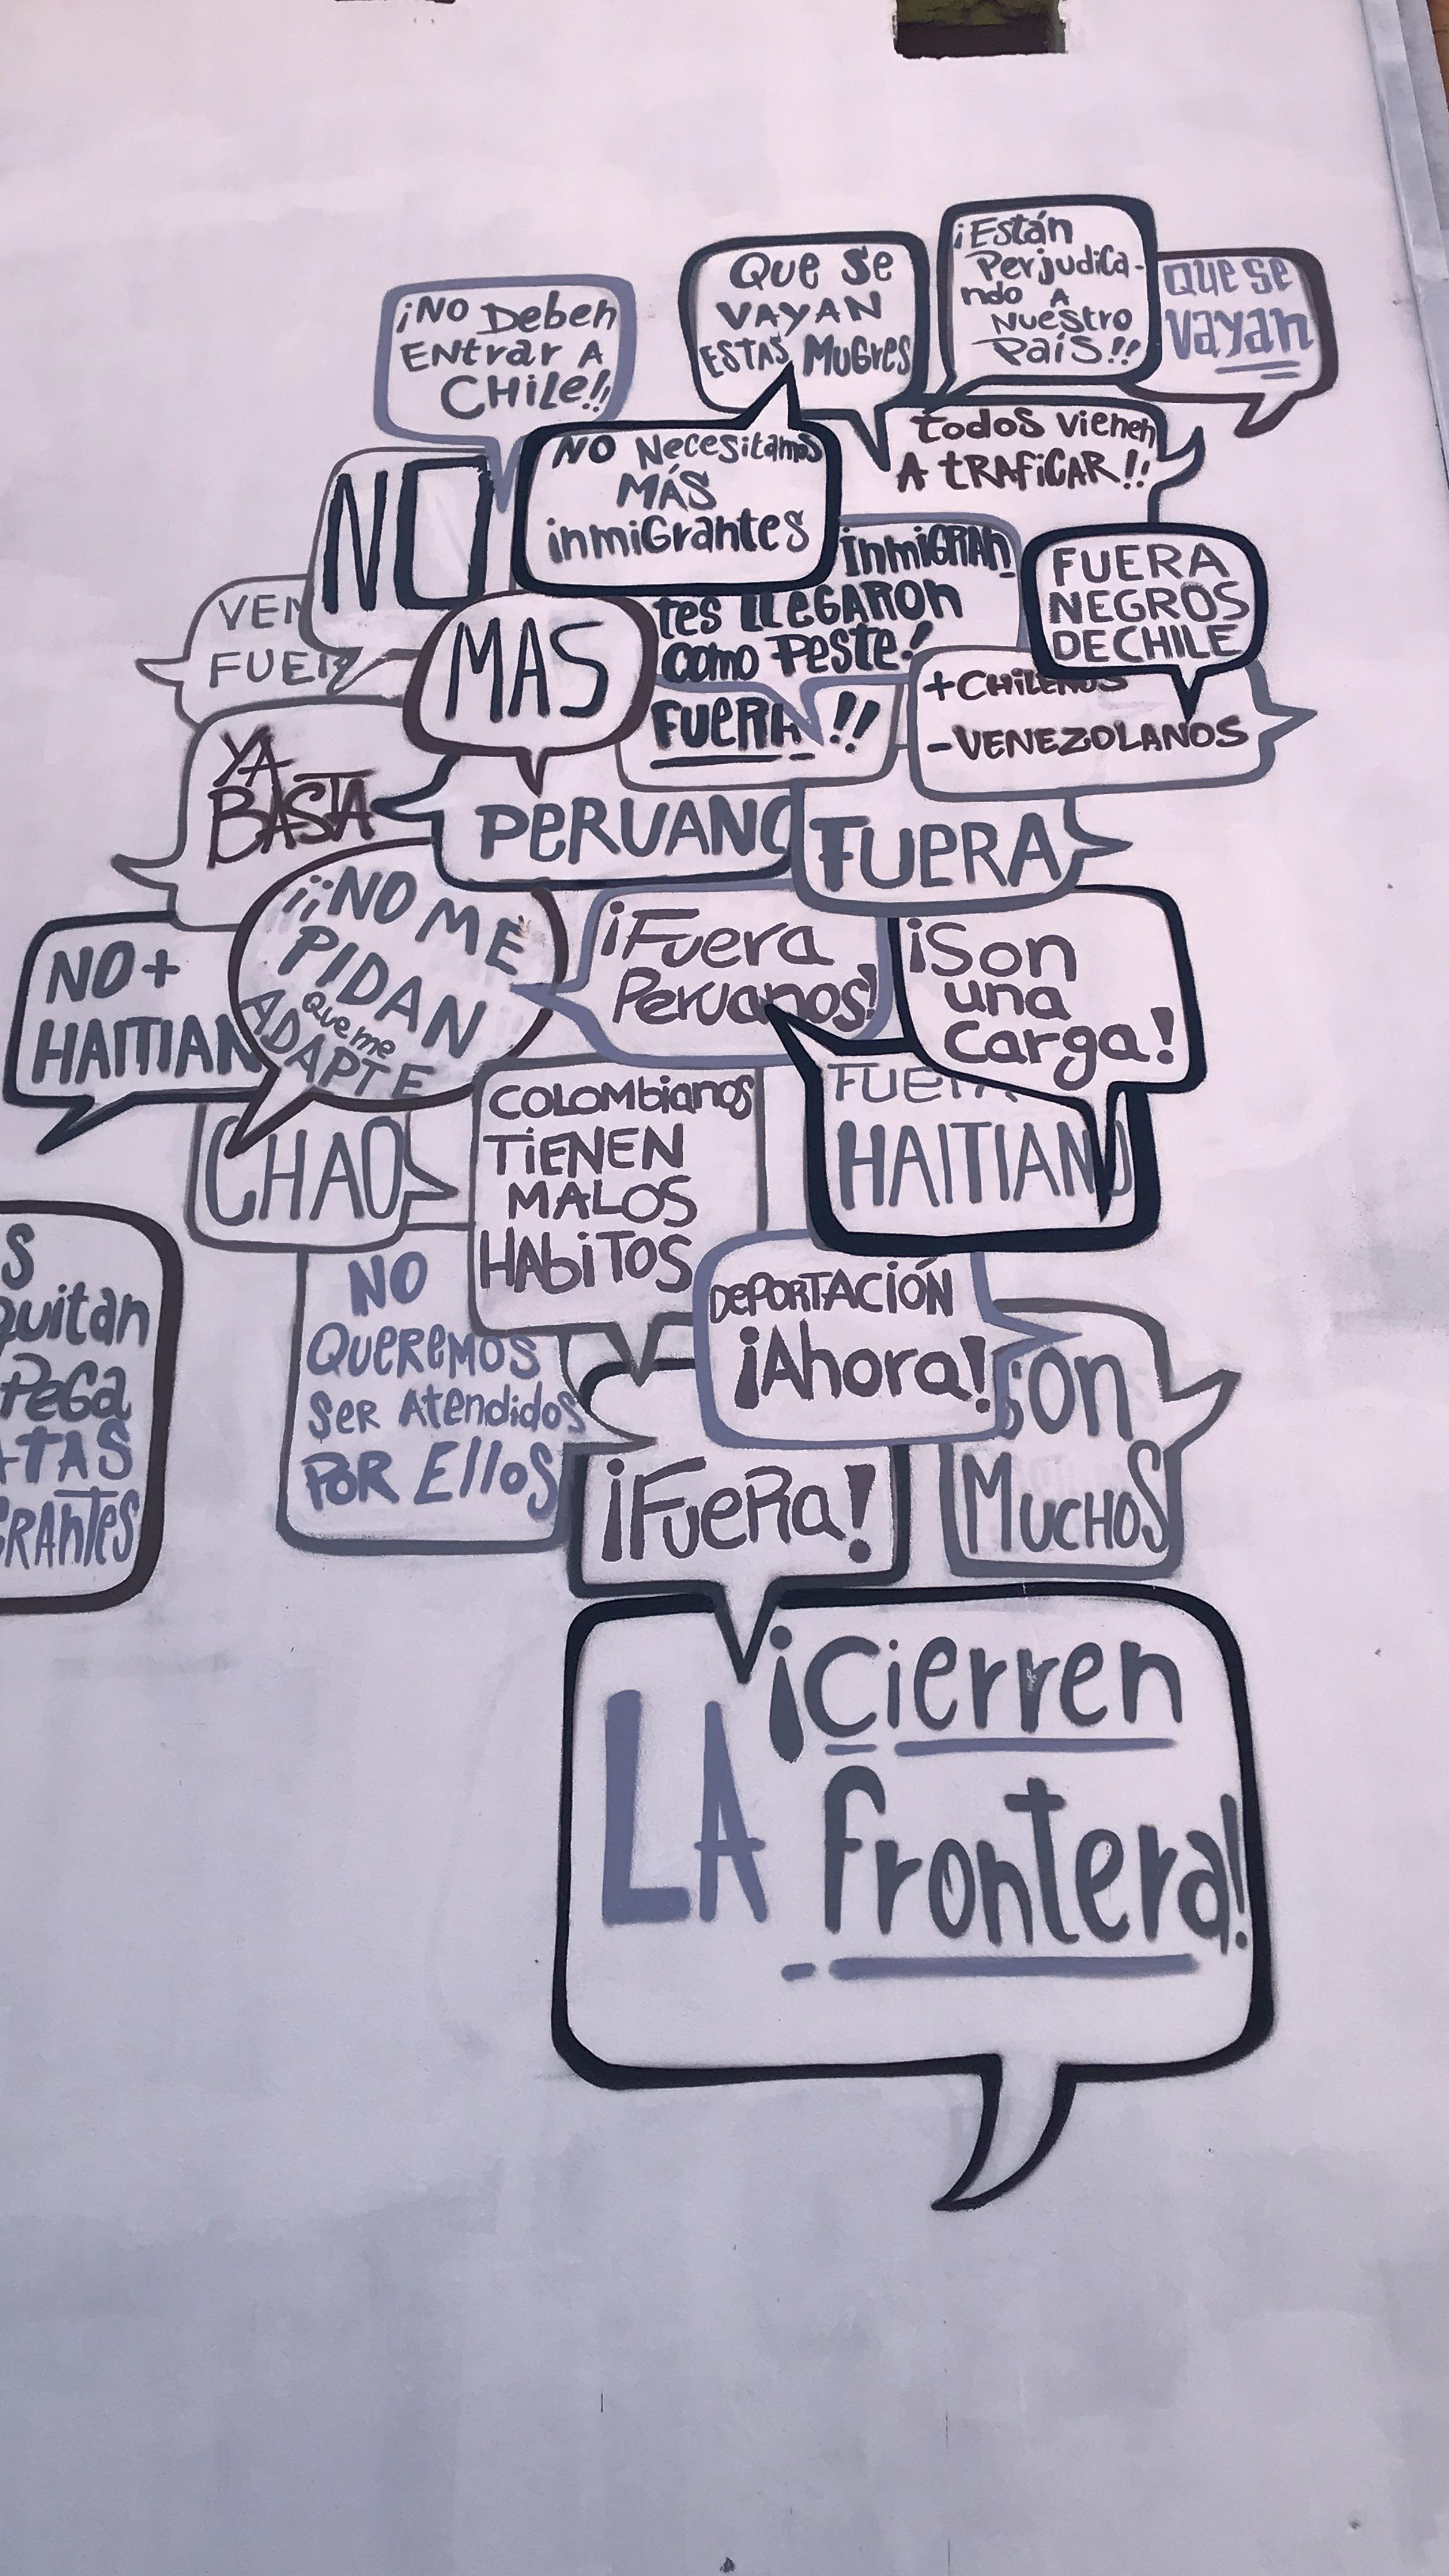 ¡NO Deben
ENtrar A
CHiLe!!
Que se
VAYAN
ESTAS MuGres
¡Están
Perjudica-
ndo A
Nuestro
País!!
Que se
Vayan
todos vienen
A tRAFiCAR!!
NO Necesitamos
MÁS
inmiGrantes
NO
InmiGRAn
tes LLEGARon
como Peste!
FUERA
NEGROS
DE CHILE
MAS
FUERA!!
+CHiLENOS
-VENEZOLANOS
YA
BASTA
PERUANO
FUERA
NO+
HAITIAN
¡¡NO ME
PIDAN
que me
ADAPTE
¡Fuera
Peruanos!
¡Son
una
Carga!
FUERA
HAITIANO
CHAO
COLOMbianos
TiENEN
MALOS
HAbiTOS
S
quitan
PeGa
TAS
GRAnTes
NO
QUeRemos
SeR Atendidos
POR EllOS
DePORTACIÓN
¡Ahora!
Son
MUCHOS
¡FueRa!
¡Cierren
LA frontera!